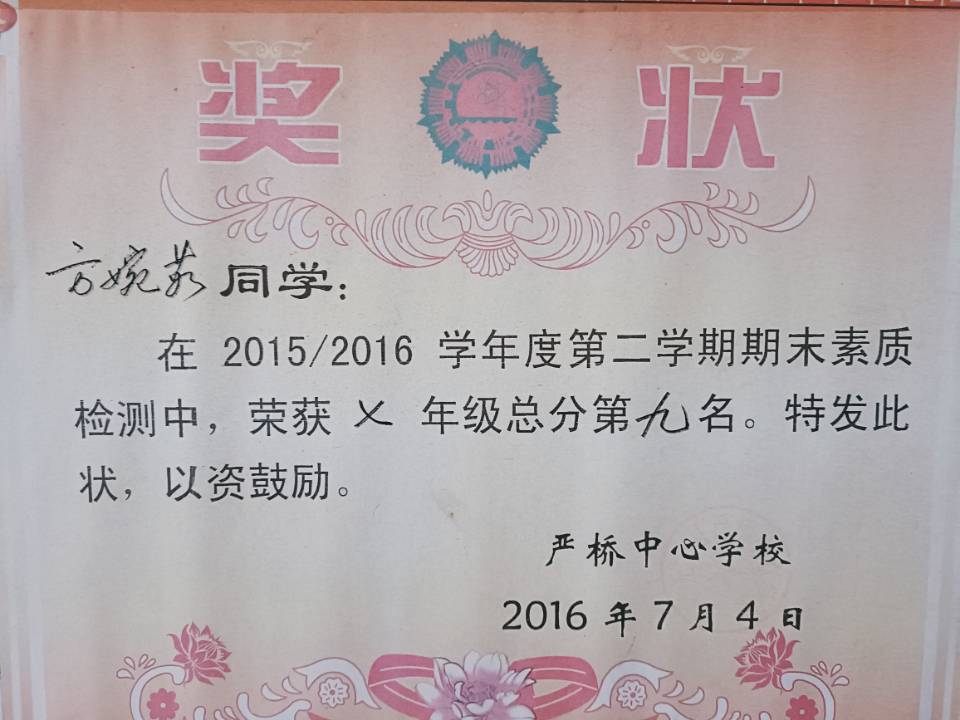 奖状
方婉茹同学：
在 2015/2016 学年度第二学期期末素质
检测中，荣获 七 年级总分第九名。特发此
状，以资鼓励。
严桥中心学校
2016 年 7 月 4 日